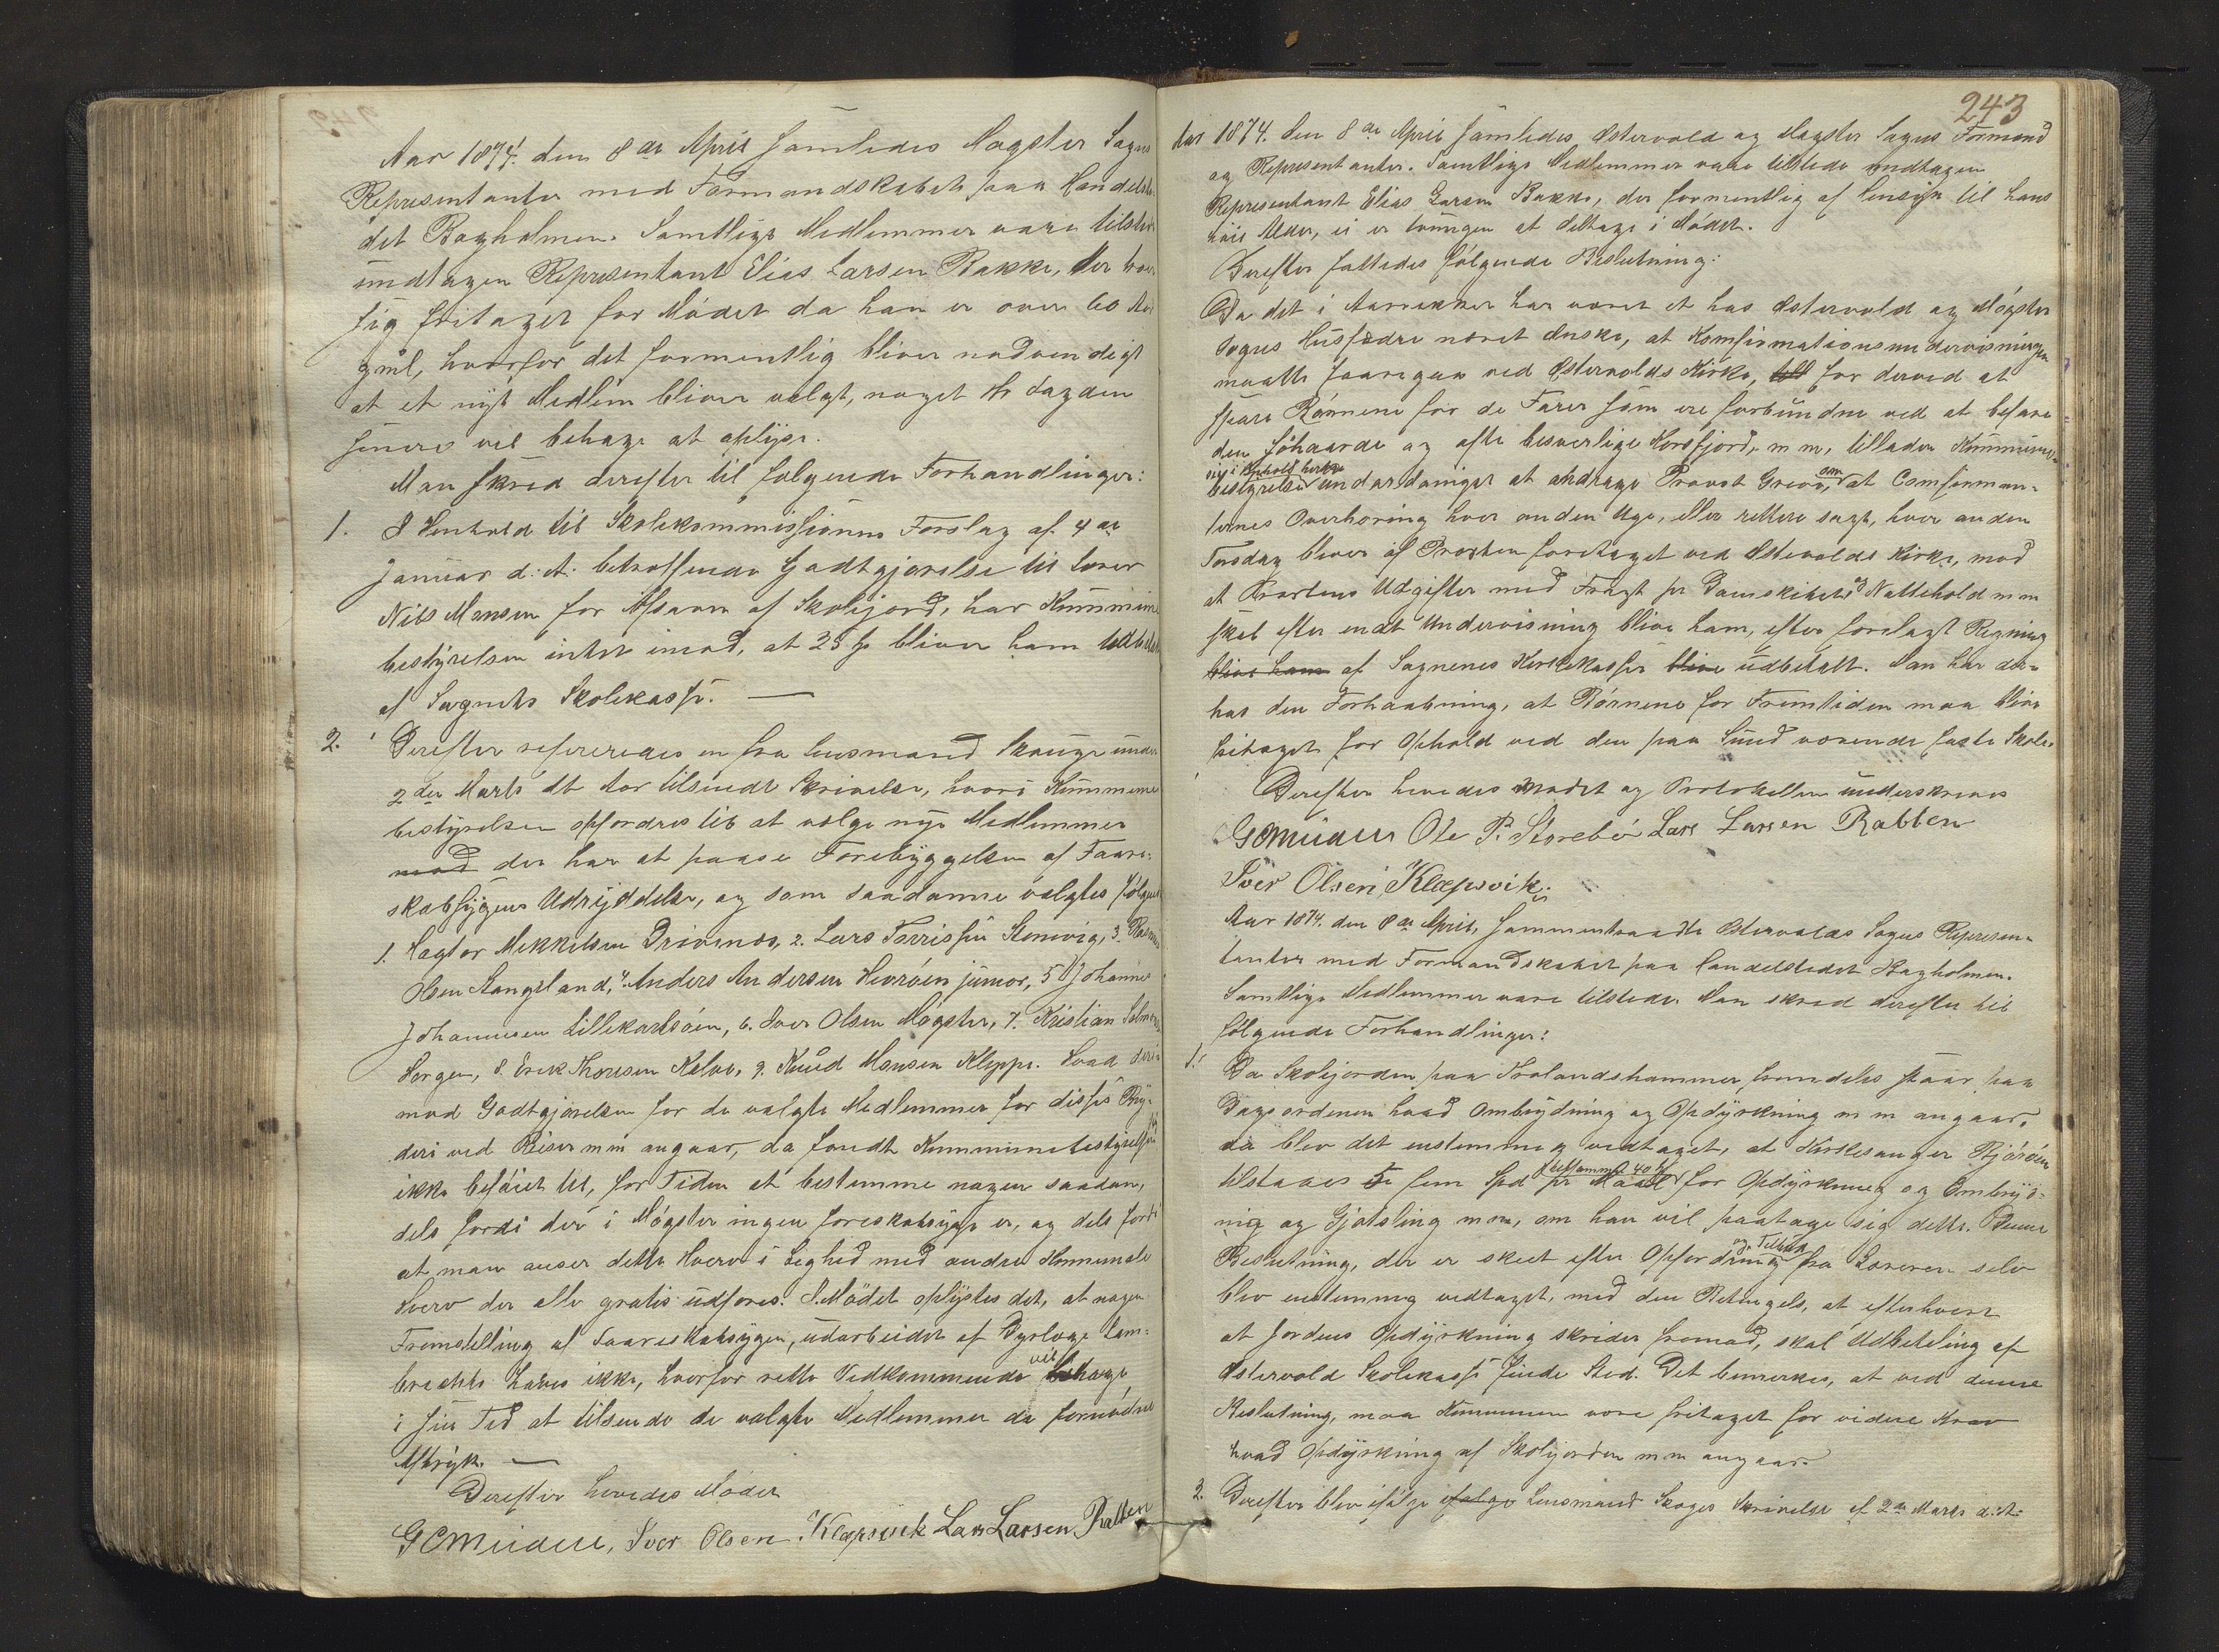 Aar 1874. den 8de April samledes Møgster Sogns
Repræsentanter med Formandskabet paa Handelste-
det Bagholmen. Samtlige Medlemmer vare tilstede
undtagen Repræsentant Elias Larsen Bakke, der har
sig fritaget for Mødet da han er over 60 Aar
gml, hvorfor det formentlig bliver nødvendigt
at et nyt Medlem bliver valgt, noget Hr Fogden
senere vil behage at oplyse.
Man skred derefter til følgende Forhandlinger:
1. I Henhold til Skolekommissionens Forslag af 4de
Januar d: A: betræffende Godtgjørelse til Lærer
Nils Monsen for Afsavn af Skolejord, har Kommune
bestyrelsen intet imod, at 25 s bliver ham udbetalt
af Sognets Skolekasse. —
2. Derefter refereredes en fra Lensmand Skauge under
2den Marts dt Aar tilsendt Skrivelse, hvori Kommune
bestyrelsen opfordres til at vælge nye Medlemmer
med der har at paase Forebyggelsen af Faare-
skabsygens Udryddelse, og som saadanne valgtes følgende
1. Hagtor Mikkelsen Drivenæs, 2. Lars Torrissen Stenevig, 3. Rasmus
Olsen Stangeland, 4. Anders Andersen Hevrøen junior, 5 Johannes
Johannesen Lillekarlsøen, 6. Iver Olsen Møgster, 7. Kristian Salmonsen
Horgen, 8. Erik Thorsen Kalve, 9. Knud Monsen Kleppe. Hvad deri-
mod Godtgjørelsen for de valgte Medlemmer for disses Bry-
deri ved Reiser mm angaar, da fandt Kommunebestyrelsen sig
ikke beføiet til, for Tiden at bestemme nogen saadan,
dels fordi der i Møgster ingen foreskabsyge er, og dels fordi
at man anser dette Hverv i Lighed med andre Kommunale
Hverv der alle gratis udføres. I Mødet oplystes det, at nogen
Fremstilling af Faareskabsygen, udarbeidet af Dyrlæge Lam-
brechts haves ikke, hvorfor rette Vedkommende vil behage
i sin Tid at tilsende de valgte Medlemmer de fornødne
Aftryk. —
Derefter hævedes Mødet
GCMidau, Iver Olsen Klæpsvik Lars Larsen Rabben
243
Aar 1874. den 8de April samledes Østervold og Møgster Sognes Formænd
og Repræsentanter. Samtlige Medlemmer vare tilstede undtagen
Repræsentant Elias Larsen Bakke, der formentlig af Hensyn til hans
høie Alder, ei er tvungen at deltage i Mødet.
Derefter fattedes følgende Beslutning:
Da det i Aarrækker har været et hos Østervold og Møgster
Sognes Husfædre næret Ønske, at Konfirmationsundervisningen
maatte foregaa ved Østervolds Kirke, for derved at
spare Børnene for de Farer som ere forbundne ved at befare
den søhaarde og ofte besværlige Korsfjord, m m, tillader Kommune-
bestyrelsen sig i Anhold herav underdanigst at andrage Provst Greve, om at Comfirman-
ternes Overhøring hver anden Uge, eller rettere sagt, hver anden
Torsdag bliver af Provsten foretaget ved Østervolds Kirke, mod
at Provstens Udgifter med Fragt pr Dampskibet og Nattehold m m
skal efter endt Undervisning blive ham, efter forelagt Regning
blive ham af Sognenes Kirkekasser blive udbetalt. Man har der-
hos den Forhaabning, at Børnene for Fremtiden maa blive
fritaget for Ophold ved den paa Sund værende faste Skole.
Derefter hævedes Mødet og Protokollen underskreves
GCMidau Ole P. Storebø Lars Larsen Rabben
Iver Olsen Klæpsvik.
Aar 1874. den 8de April, sammentraadte Østervolds Sogns Repræsen-
tanter med Formandskabet paa Handelsstedet Bagholmen.
Samtlige Medlemmer vare tilstede. Man skred derefter til
følgende Forhandlinger:
1. Da Skolejorden paa Frolandshammer fremdeles staar paa
Dagsordenen hvad Ombrydning og Opdyrkning m m angaar,
da blev det enstemmig vedtaget, at Kirkesanger Bjørøen
tilstaaes 5 fem Spd pr Maal tilsammen 40 s for Opdyrkning og Ombryd-
nig og Gjødsling m m, om han vil paatage sig dette. Denne
Beslutning, der er skeet efter Opfordring og Tilbud fra Læreren selv
blev enstemmig vedtaget, med den Betingels, at efterhvert
at Jordens Opdyrkning skrider fremad, skal Udbetaling af
Østervold Skolekasse finde Sted. Det bemærkes, at ved denne
Beslutning, maa Kommunen være fritaget for videre Krav
hvad Opdyrkning af Skolejorden m m angaar.
2. Derefter blev ifølge ifølge Lensmand Skoges Skrivelse af 2den Marts d: A: